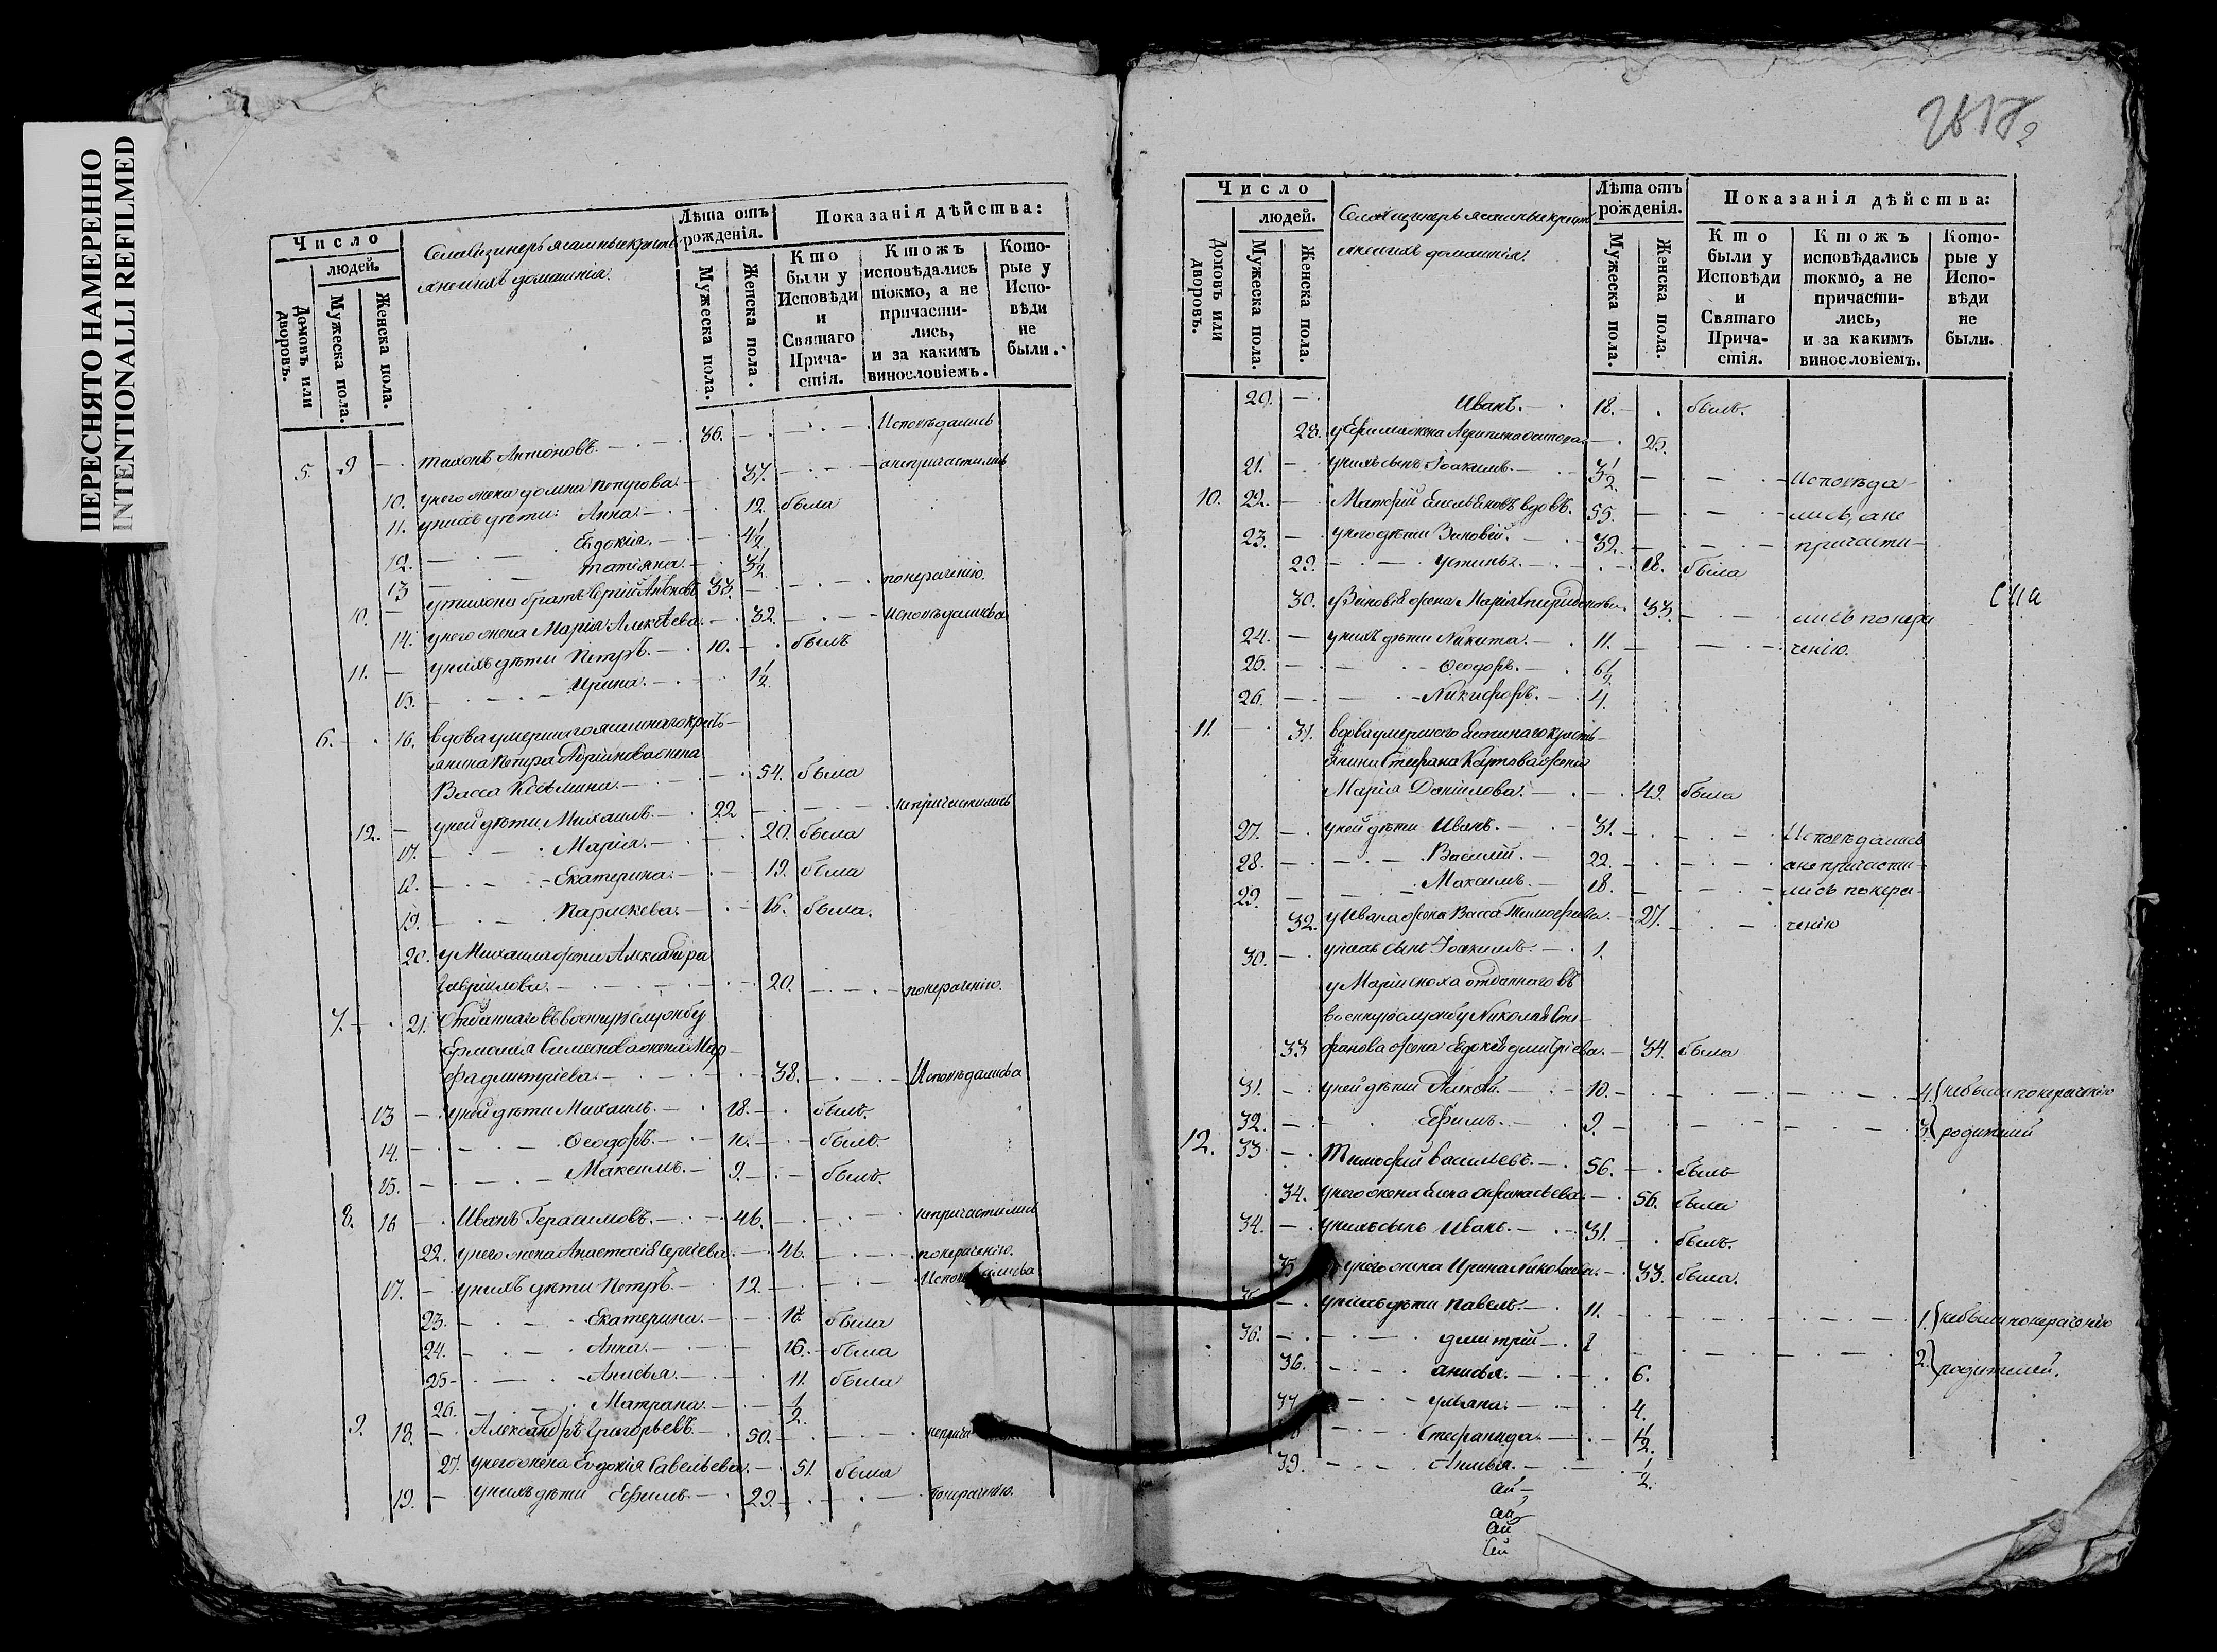 ПЕРЕСНЯТО НАМЕРЕННО
INTENTIONALLI REFILMED
Число
людей.
Домовъ или дворовъ.
Мужеска пола.
Женска пола.
и ихъ домашнія.
Лѣта отъ рожденія.
Мужеска пола.
Женска пола.
Показанія дѣйства:
Кто были у Исповѣди и Святаго Причастія.
Ктожъ исповѣдались токмо, а не причастились, и за какимъ винословіемъ.
Которые у Исповѣди не были.
5. 9 — Тихонъ Антоновъ. — 36. — Исповѣдались
10. у него жена Домна Петрова — 37. — а не причастились
11. у нихъ дѣти: Анна. — 12. была
12. — Евдокія. — 4 1/2
13 — Татіяна. — 3 1/2
10. — у Тихона братъ Сергій Антоновъ 33. — по нераченію.
14. у него жена Марія Алексѣева. — 32. — Исповѣдались а
11. — у нихъ дѣти Петръ. — 10. — былъ
15. — Ирина. — 1 1/2
6. — 16. вдова умершаго ясашнаго кресть-
янина Петра жена
Васса Козмина. — 54. была
12. — у ней дѣти Михаилъ. — 22 — не причастились
17. — Марія. — 20. была
18. — Екатерина. — 19. была
19. — Параскева. — 16. была.
20. у Михаила жена Александра
Гавріилова. — 20. — по нераченію.
7. — 21. Отданнаго въ военную службу
Ермолая Симеонова жена Мар-
фа Дмитріева. — 38. — Исповѣдались а
13 — у ней дѣти Михаилъ. — 18. — былъ.
14. — Ѳеодоръ. — 10. — былъ.
15. — Максимъ. — 9. — былъ.
8. 16 — Иванъ Герасимовъ. — 46. — не причастились
22. у него жена Анастасія Сергіева. — 46. — по нераченію.
17. — у нихъ дѣти Петръ. — 12. —
23. — Екатерина. — 18. была
24. — Анна. — 16. была
25 — Анисья. — 11. была
26. — Матрона. — 1/2.
9. 18. — Александръ Григорьевъ. — 50. —
27. у него жена Евдокія Савельева. — 51. была
19. — у нихъ дѣти Ефимъ. — 29. — по нераченію.
Число
людей.
Домовъ или дворовъ.
Мужеска пола.
Женска пола.
и ихъ домашнія.
Лѣта отъ рожденія.
Мужеска пола.
Женска пола.
Показанія дѣйства:
Кто были у Исповѣди и Святаго Причастія.
Ктожъ исповѣдались токмо, а не причастились, и за какимъ винословіемъ.
Которые у Исповѣди не были.
20. — Иванъ. — 18. — былъ.
28. у Ефима жена Агрипина — 25.
21. — у нихъ сынъ Іоакимъ. — 3 1/2. — Исповѣда-
10. 22. — Матфій Емельяновъ вдовъ. 55. — лись, а не
23. — у него дѣти Зиновій. — 32. — причасти-
29. — Устинья. — 18. была
30. у Зиновія жена Марія Спиридонова. 33. — лись по нера
24. — у нихъ дѣти Никита. — 11. — ченію.
25. — Ѳеодоръ. — 6 1/2
26. — Никифоръ. — 4.
11. — 31. вдова умершаго ясашнаго кресть-
янина Стефана Карпова жена
Марія Данилова. — 49. была
27. — у ней дѣти Иванъ. — 31. — Исповѣдались
28. — Василій. — 22. — а не причасти-
29. — Максимъ. — 18. — лись по нера-
32. у Ивана жена Васса Тимофеева. — 27. — ченію
30. — у нихъ сынъ Іоакимъ. — 1.
у Маріи сноха отданнаго въ
военную службу Николая Сте-
33 фанова жена Евдокія Дмитріева. — 34. была
31. — у ней дѣти Алексѣй. — 10. — 4. не были по нераченію
32. — Ефимъ. — 9. — 3. родителей
12. 33 — Тимофей Васильевъ. — 56. — былъ
34. у него жена Елена Афанасьева. — 56. была
34. — у нихъ сынъ Иванъ. — 31. — былъ.
35 у него жена Ирина Николаева. — 33. была.
— у нихъ дѣти Павелъ. — 11. — 1. не были по нераченію
36. — Дмитрій — 8 — 2. родителей.
36. — Анисья. — 6.
37 — Ульяна. — 4.
— Стефанида. — 1 1/2.
39. — Анисья. — 1/2.